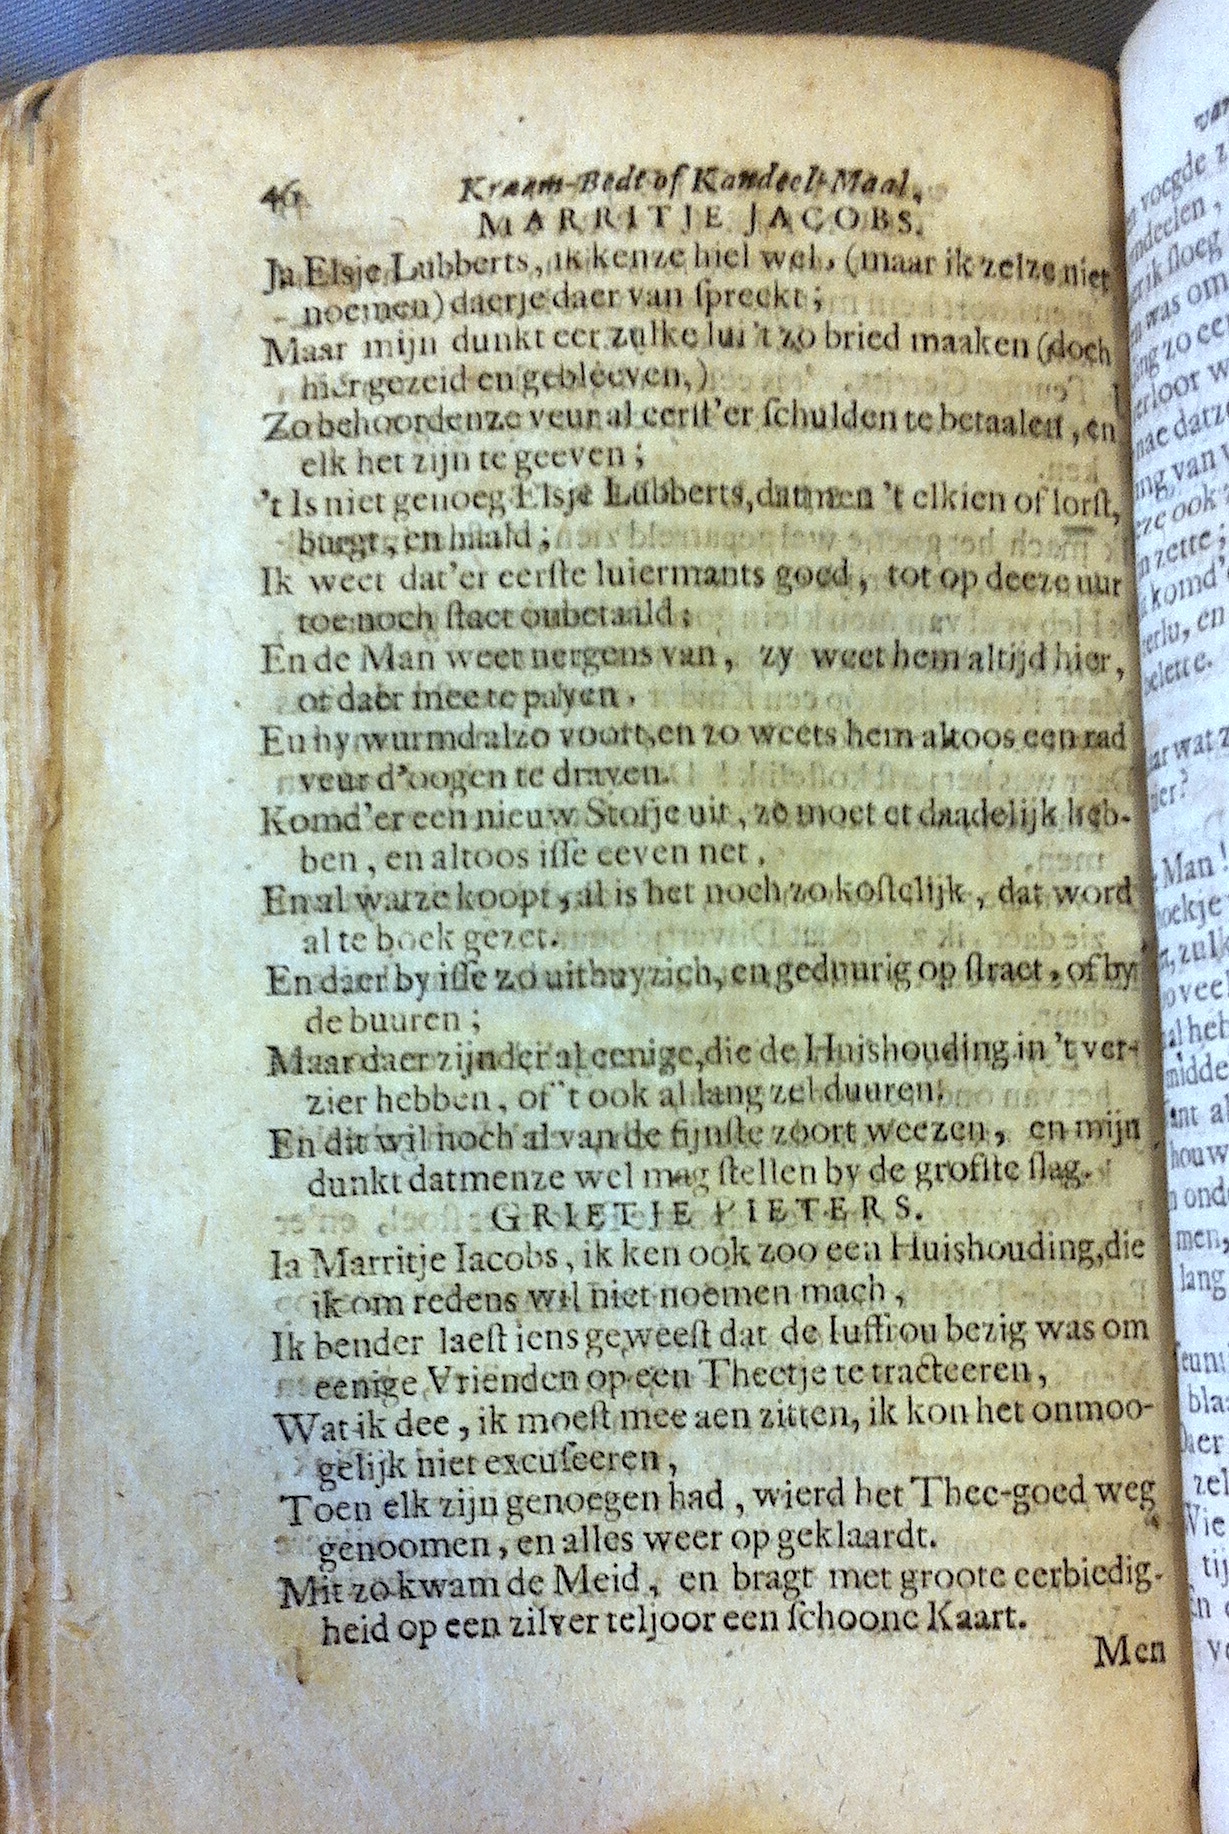 46 Kraam-Bedt of Kandeel-Maal,
MARRITJE JACOBS.
Ja Elsje Lubberts, ik kenze hiel wel, (maar ik zelze niet
noemen) daerje daer van ſpreekt;
Maar mijn dunkt eer zulke lui 't zo bried maaken (doch
hier gezeid en gebleeven,)
Zo behoordenze veur al eerſt 'er ſchulden te betaalen, en
elk het zijn te geeven;
't Is niet genoeg Elsje Lubberts, datmen 't elkien of lorſt,
burgt, en haald;
Ik weet dat'er eerſte luiermants goed, tot op deeze uur
toe noch ſtaet onbetaald;
En de Man weet nergens van, zy weet hem altijd hier,
of daer mee te payen,
En hy wurmd alzo voort, en zo weets hem altoos een rad
veur d'oogen te drayen.
Komd'er een nieuw Stofje uit, ze moet et daadelijk heb-
ben, en altoos iſſe eeven net,
En al watze koopt, al is het noch zo koſtelijk, dat word
al te boek gezet.
En daer by iſſe zo uithuyzich, en geduurig op ſtraet, of by
de buuren;
Maar daer zijnder al eenige, die de Huishouding in 't ver-
zier hebben, of 't ook al lang zel duuren;
En dit wil noch al van de fijnſte zoort weezen, en mijn
dunkt datmenze wel mag ſtellen by de grofſte ſlag.
GRIETJE PIETERS.
Ia Marritje Iacobs, ik ken ook zoo een Huishouding, die
ik om redens wil niet noemen mach,
Ik bender laeſt iens geweeſt dat de Iuffrou bezig was om
eenige Vrienden op een Theetje te tracteeren,
Wat ik dee, ik moeſt mee aen zitten, ik kon het onmoo-
gelijk niet excuſeeren,
Toen elk zijn genoegen had, wierd het Thee-goed weg
genoomen, en alles weer op geklaardt.
Mit zo kwam de Meid, en bragt met groote eerbiedig-
heid op een zilver teljoor een ſchoone Kaart.
Men